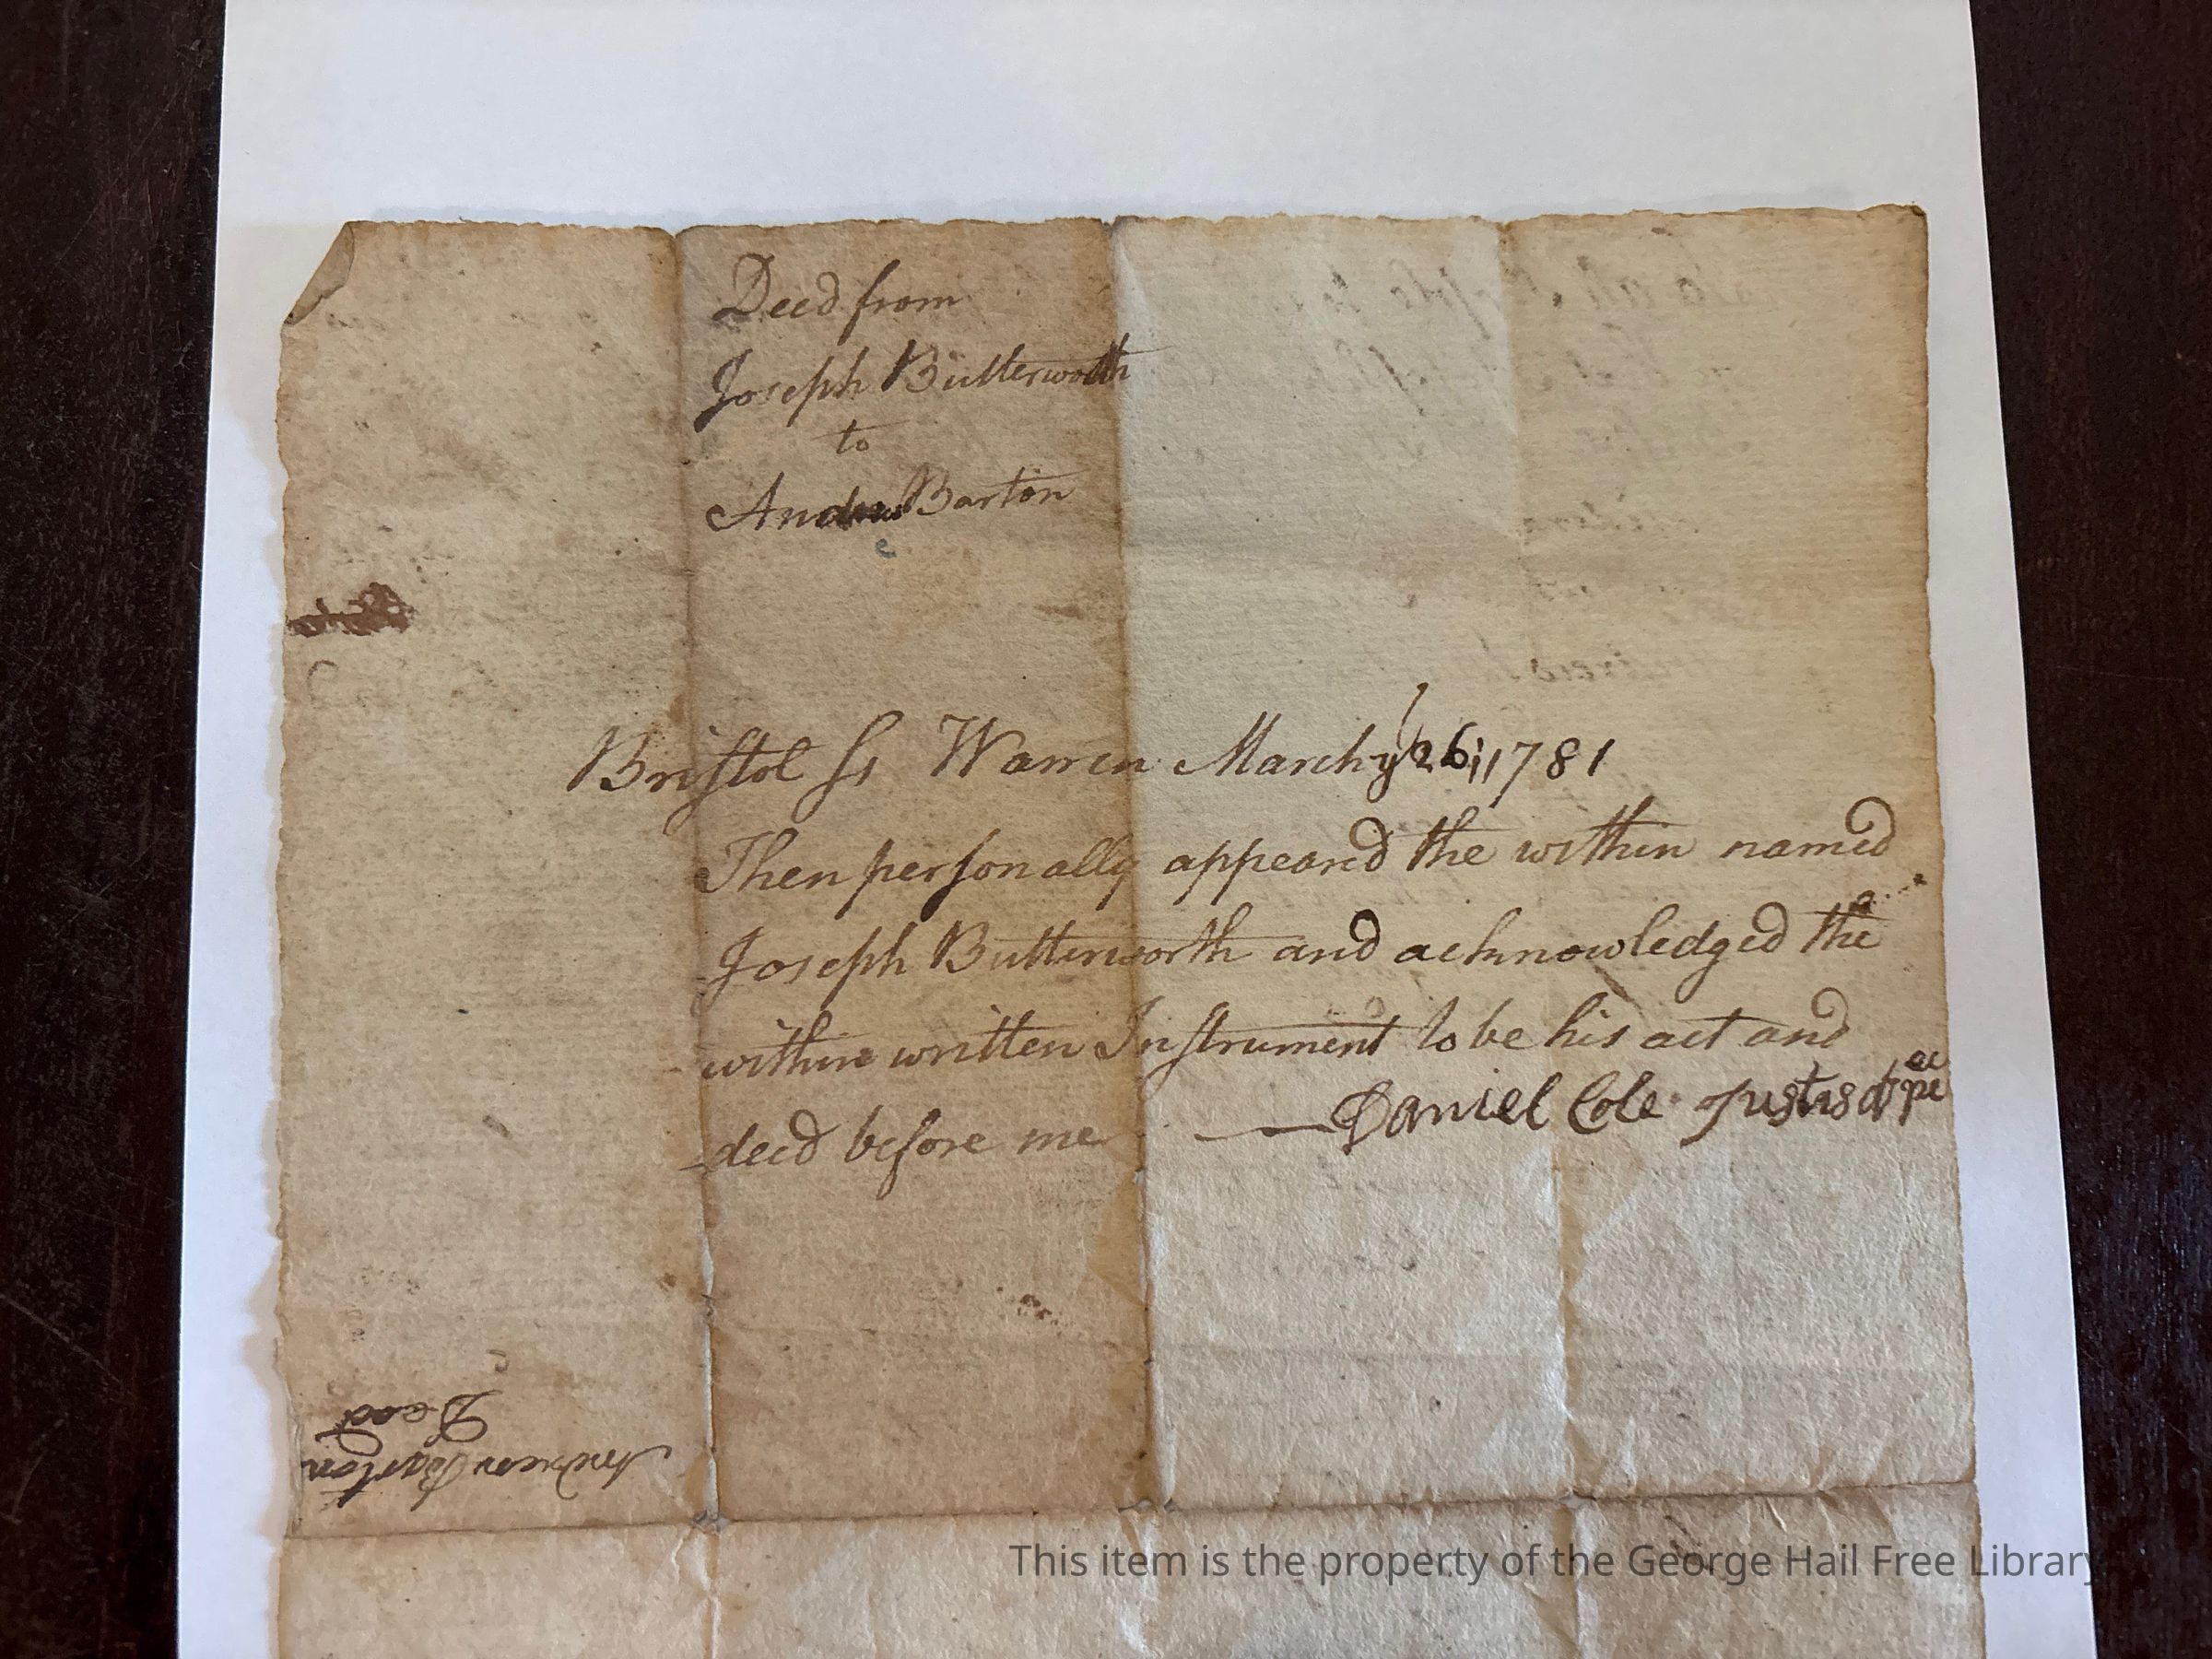 Deed from
Joseph Butterworth
to
Andrew Barton
Bristol Ss Warren March ye 26 1781
Then personally appeard the within named
Joseph Butterworth and acknowledged the
within written Instrument to be his act and
deed before me
Daniel Cole Justis of pe ac
Andrew Barton
Deed
This item is the property of the George Hail Free Library